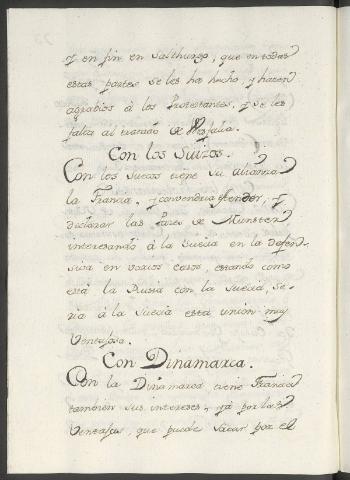 y en fin en Saltburgo, que en todas
estas partes se les ha hecho, y hacen
agrabios à los Protestantes, y se les
falta al tratado de Wesfalia.
Con los Suizos.
Con los Suecos tiene su Alianza
la Francia, y convendria atender, y
declarar las Pazes de Munster
interesando à la Suecia en la defen-
siva en varios casos, estando como
està la Rusia con la Suecia, se-
ria à la Suecia esta union muy
Ventajosa.
Con Dinamarca.
Con la Dinamarca tiene Francia
tambien sus intereses, yà por las
Ventajas, que puede sacar por el